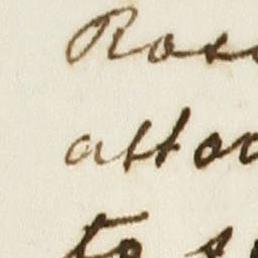 Ros
atto
to s